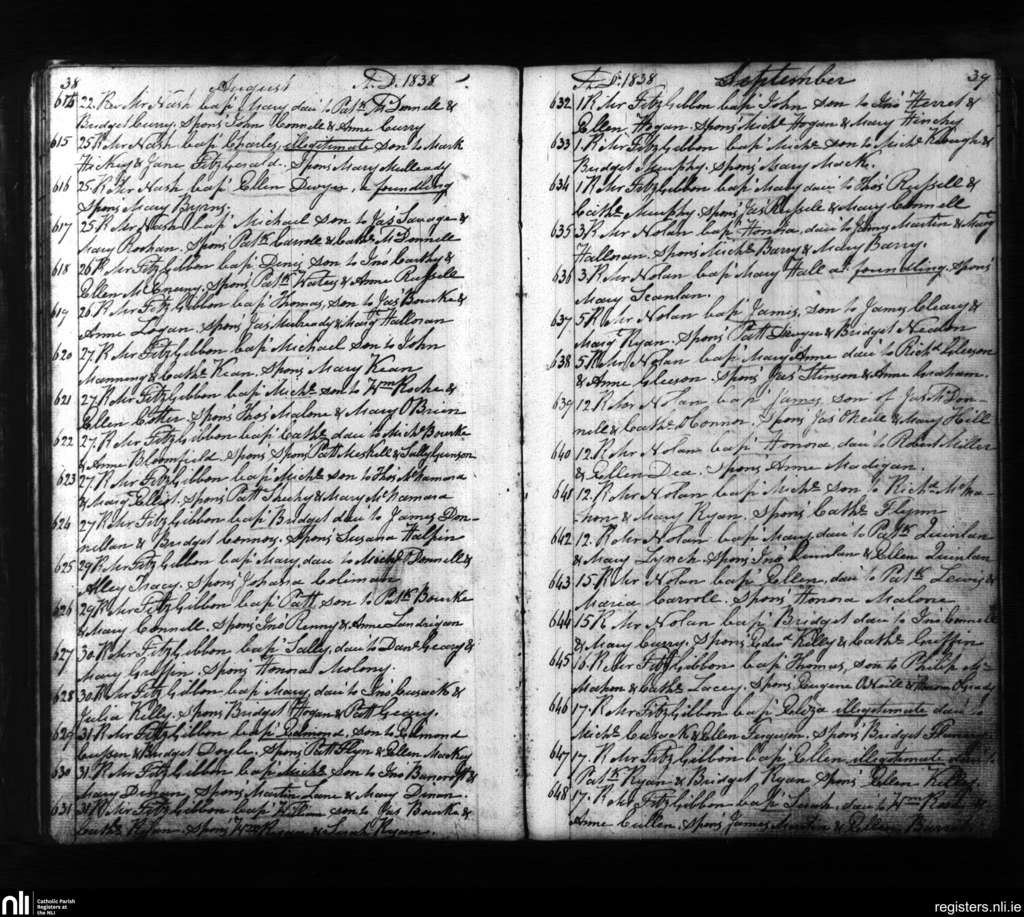 38 August A.D. 1838
614 22. Rv Mr Nash bap Mary daur to Patk McDonnell &
Bridget Curry. Spons John Connell & Anne Curry
615 25 R Mr Nash bap Charles, illegitimate son to Mark
Hickey & Jane FitzGerald. Spons Mary Mulready
616 25 R Mr Nash bap Ellen Dwyer, a foundling
Spons Mary Byrns.
617 25 R Mr Nash bap Michael son to Jas Savage &
Mary Rohan. Spons Patk Carroll & Cathe McDonnell
618 26 R Mr FitzGibbon bap Denis son to Jno Carthy &
Ellen McEnery. Spons Patk Wates & Anne Russell
619 26 R Mr FitzGibbon bap Thomas, son to Jas Bourke &
Anne Logan. Spons Jas Mulready & Margt Halloran
620 27. R Mr FitzGibbon bap Michael son to John
Manning & Cathe Kean. Spons Mary Kean
621 27. R Mr FitzGibbon bap Michl son to Wm Roche &
Ellen Cotter. Spons Thos Malone & Mary O'Brien
622 27. R Mr FitzGibbon bap Cathe daur to Michl Bourke
& Anne Bloomfield. Spons Patt Meskell & Sally
623 27. R Mr FitzGibbon bap Michl son to Thos McNamara
& Margt Elliot. Spons Patt Sheehy & Mary McNamara
624 27 R Mr FitzGibbon bap Bridget daur to James Don-
nellan & Bridget Connors. Spons Susana Halpin
625 29 R Mr FitzGibbon bap Mary daur to Michl Donnell &
Alley Tracy. Spons Johana Coleman
626 29 R Mr FitzGibbon bap Patt son to Patk Bourke
& Mary Connell. Spons Jno Renny & Anne Landrigan
627 30. R Mr FitzGibbon bap Sally, daur to Danl Geary &
Mary Griffin. Spons Honora Molony.
628 30 R Mr FitzGibbon bap Mary, daur to Jno Cusack &
Julia Kelly. Spons Bridget Hogan & Patt Geary.
629 31 R Mr FitzGibbon bap Edmond, son to Edmond
Cussen & Bridget Doyle. Spons Patt Flyn & Ellen Mackey
630 31. R Mr FitzGibbon bap Michl son to Jno &
Mary Dinan. Spons Martin Lane & Mary Dinan.
631 31 R Mr FitzGibbon bap William son to Jas Bourke &
Cathe Ryan. Spons Wm Ryan & Sarah Ryan.
A.D. 1838 September 39
632 1 R Mr FitzGibbon bap John son to Jno &
Ellen Hogan. Spons Michl Hogan & Mary Hinchy
633 1 R Mr FitzGibbon bap Michl son to Michl Keough &
Bridget Murphy. Spons Mary Mack.
634 1 R Mr FitzGibbon bap Mary daur to Thos Russell &
Cathe Murphy. Spons Jas Russell & Mary Connell
635 3 R Mr Nolan bap Honora daur to James Martin & Mary
Halloran. Spons Michl Barry & Mary Barry.
636 3 R Mr Nolan bap Mary Hall a foundling. Spons
Mary Scanlan.
637 5 R Mr Nolan bap James, son to James Cleary &
Margt Ryan. Spons Patt Dwyer & Bridget Nealon
638 5 R Mr Nolan bap Mary Anne daur to Richd Gleeson
& Anne Gleeson. Spons Jas Stinson & Anne Graham.
639 12 R Mr Nolan bap James son of Jas McDon-
nell & Cathe O'Connor. Spons Jas O'Neill & Mary Hill
640 12. R Mr Nolan bap Honora daur to Robert Miller
& Ellen Dea. Spons Anne Madigan.
641 12. R Mr Nolan bap Michl son to Richd McMa-
hon & Mary Ryan. Spons Cathe Flynn
642 12. R Mr Nolan bap Mary, daur to Patk Quinlan
& Mary Lynch. Spons Jno Quinlan & Ellen Quinlan
643 15 R Mr Nolan bap Ellen, daur to Patk Lewis &
Maria Carroll. Spons Honora Malone
644 15 R Mr Nolan bap Bridget daur to Jno Connell
& Mary Curry. Spons Edwd Kelly & Cathe Griffin
645 16 R Mr FitzGibbon bap Thomas, son to Philip Mc
Mahon & Cathe Lacey. Spons Eugene O'Neill & Honora O'Grady
646 17. R Mr FitzGibbon bap Eliza illegitimate daur to
Michl Cusack & Ellen Ferguson. Spons Bridget Flannery
647 17. R Mr FitzGibbon bap Ellen illegitimate daur to
Patk Ryan & Bridget Ryan. Spons Ellen Kelly
648 17. R Mr FitzGibbon bap Sarah, daur to Wm &
Anne Cullen. Spons James Martin & Ellen
nli Catholic Parish
Registers at
the NLI
registers.nli.ie